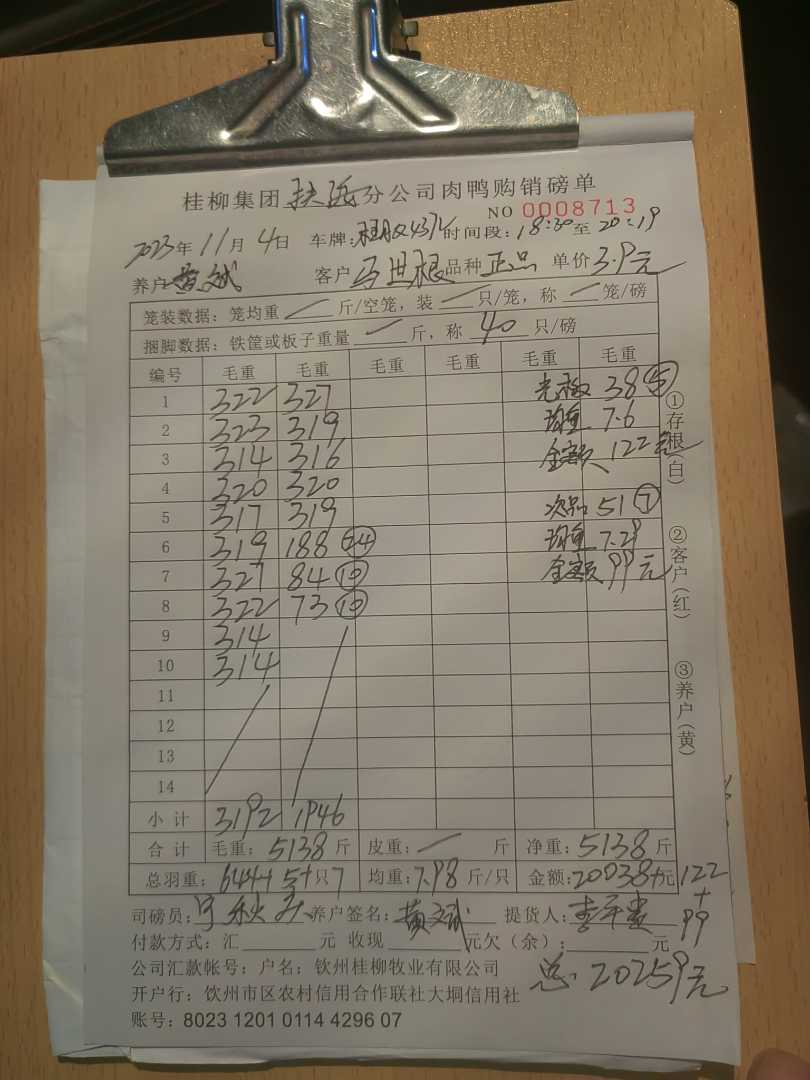 桂柳集团扶海分公司肉鸭购销磅单
NO 0008713
2023年11月4日 车牌: 时间段:18:30至20:19
养户黄斌 客户马世根品种正品 单价3.9元
笼装数据:笼均重 / 斤/空笼,装 / 只/笼,称 / 笼/磅
捆脚数据:铁筐或板子重量 / 斤,称 40 只/磅
编号 毛重 毛重 毛重 毛重 毛重 毛重
1 322 327 38 ⑤
2 323 319 均重 7.6
3 314 316 金额 122元
4 320 320
5 317 319 次品 51 ⑦
6 319 188 24 均重 7.29
7 327 84 ⑩ 金额 99元
8 322 73 ⑩
9 314
10 314
11
12
13
14
小计 3192 1946
合计 毛重:5138斤 皮重: / 斤 净重:5138斤
总羽重:644+5+只7 均重:7.98斤/只 金额:20038+元122
+
99
司磅员: 养户签名:黄斌 提货人:
付款方式:汇 元 收现 元欠(余): 元
公司汇款帐号:户名:钦州桂柳牧业有限公司
总:20259元
开户行:钦州市区农村信用合作联社大垌信用社
账号:8023 1201 0114 4296 07
①存根(白)
②客户(红)
③养户(黄)